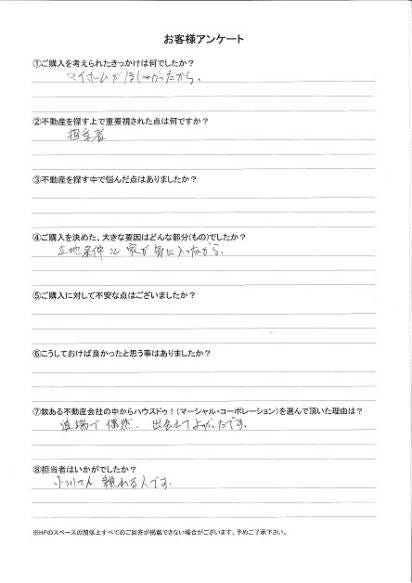 お客様アンケート
①ご購入を考えられたきっかけは何でしたか？
マイホームがほしかったから。
②不動産を探す上で重要視された点は何ですか？
担当者
③不動産を探す中で悩んだ点はありましたか？
④ご購入を決めた、大きな要因はどんな部分(もの)でしたか？
立地条件と家が気に入ったから。
⑤ご購入に対して不安な点はございましたか？
⑥こうしておけば良かったと思う事はありましたか？
⑦数ある不動産会社の中からハウスドゥ！(マーシャル・コーポレーション)を選んで頂いた理由は？
現場で偶然。出会えてよかったです。
⑧担当者はいかがでしたか？
小川さん 頼れる人です。
※HPのスペースの関係上すべてのご回答が掲載できない場合がございます。予めご了承下さい。